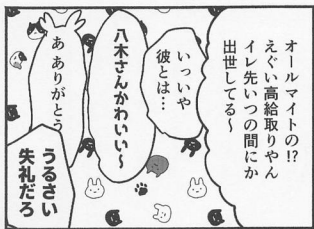 オールマイトの!?
えぐい高給取りやん
イレ先いつの間にか
出世してる〜
いっいや
彼とは…
八木さんかわいい〜
あ ありがとう
うるさい
失礼だろ